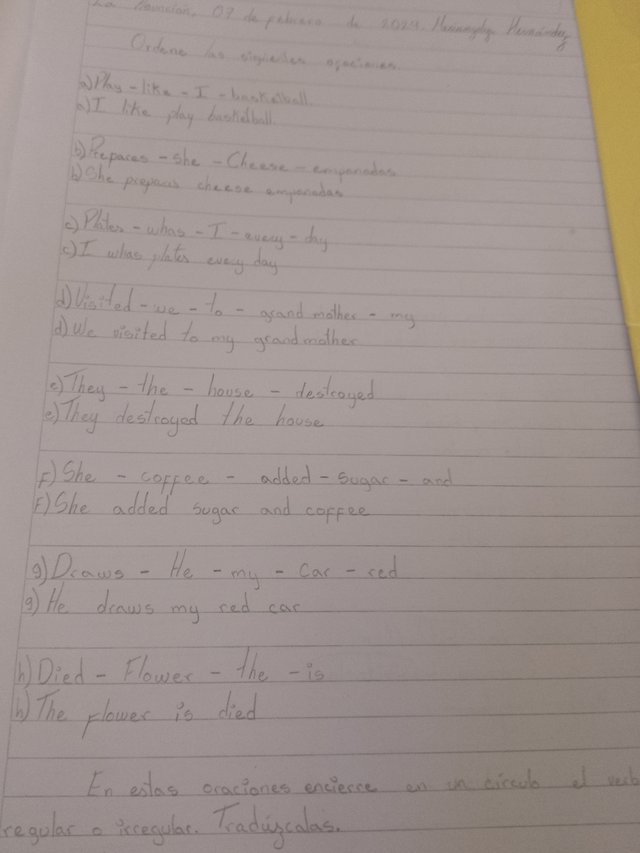 La Asunción, 07 de febrero de 2024. Hernández
Ordene las siguientes oraciones
a) Play - like - I - basketball.
a) I like play basketball.
b) Prepares - she - Cheese - empanadas
b) She prepares cheese empanadas
c) Plates - whas - I - every - day
c) I whas plates every day
d) Visited - we - to - grand mother - my
d) We visited to my grandmother
e) They - the - house - destroyed
e) They destroyed the house
F) She - coffee - added - sugar - and
F) She added sugar and coffee
g) Draws - He - my - car - red
g) He draws my red car
h) Died - Flower - the - is
h) The flower is died
En estas oraciones encierre en un circulo el verb
regular o irregular. Tradúzcalas.